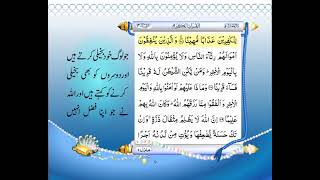 لِلْكٰفِرِيْنَ عَذَابًا مُّهِيْنًا وَالَّذِيْنَ يُنْفِقُوْنَ
اَمْوَالَهُمْ رِئَآءَ النَّاسِ وَلَا يُؤْمِنُوْنَ بِاللّٰهِ وَلَا
بِالْيَوْمِ الْاٰخِرِ وَمَنْ يَّكُنِ الشَّيْطٰنُ لَهٗ قَرِيْنًا
فَسَآءَ قَرِيْنًا وَمَاذَا عَلَيْهِمْ لَوْ اٰمَنُوْا بِاللّٰهِ وَالْيَوْمِ
الْاٰخِرِ وَاَنْفَقُوْا مِمَّا رَزَقَهُمُ اللّٰهُ وَكَانَ اللّٰهُ بِهِمْ
عَلِيْمًا اِنَّ اللّٰهَ لَا يَظْلِمُ مِثْقَالَ ذَرَّةٍ وَاِنْ
تَكُ حَسَنَةً يُّضٰعِفْهَا وَيُؤْتِ مِنْ لَّدُنْهُ اَجْرًا
جو لوگ خود بخیلی کرتے ہیں
اور دوسروں کو بھی بخیلی
کرنے کو کہتے ہیں اور اللہ
نے جو اپنا فضل انہیں